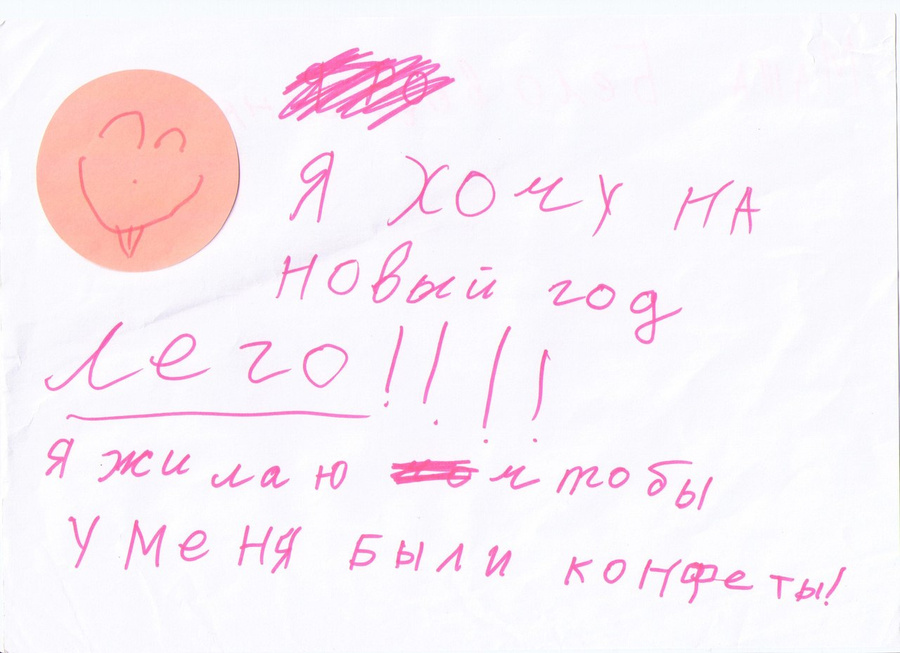 Я хочу на
новый год
лего!!!!
Я жилаю чтобы
у меня были конфеты!